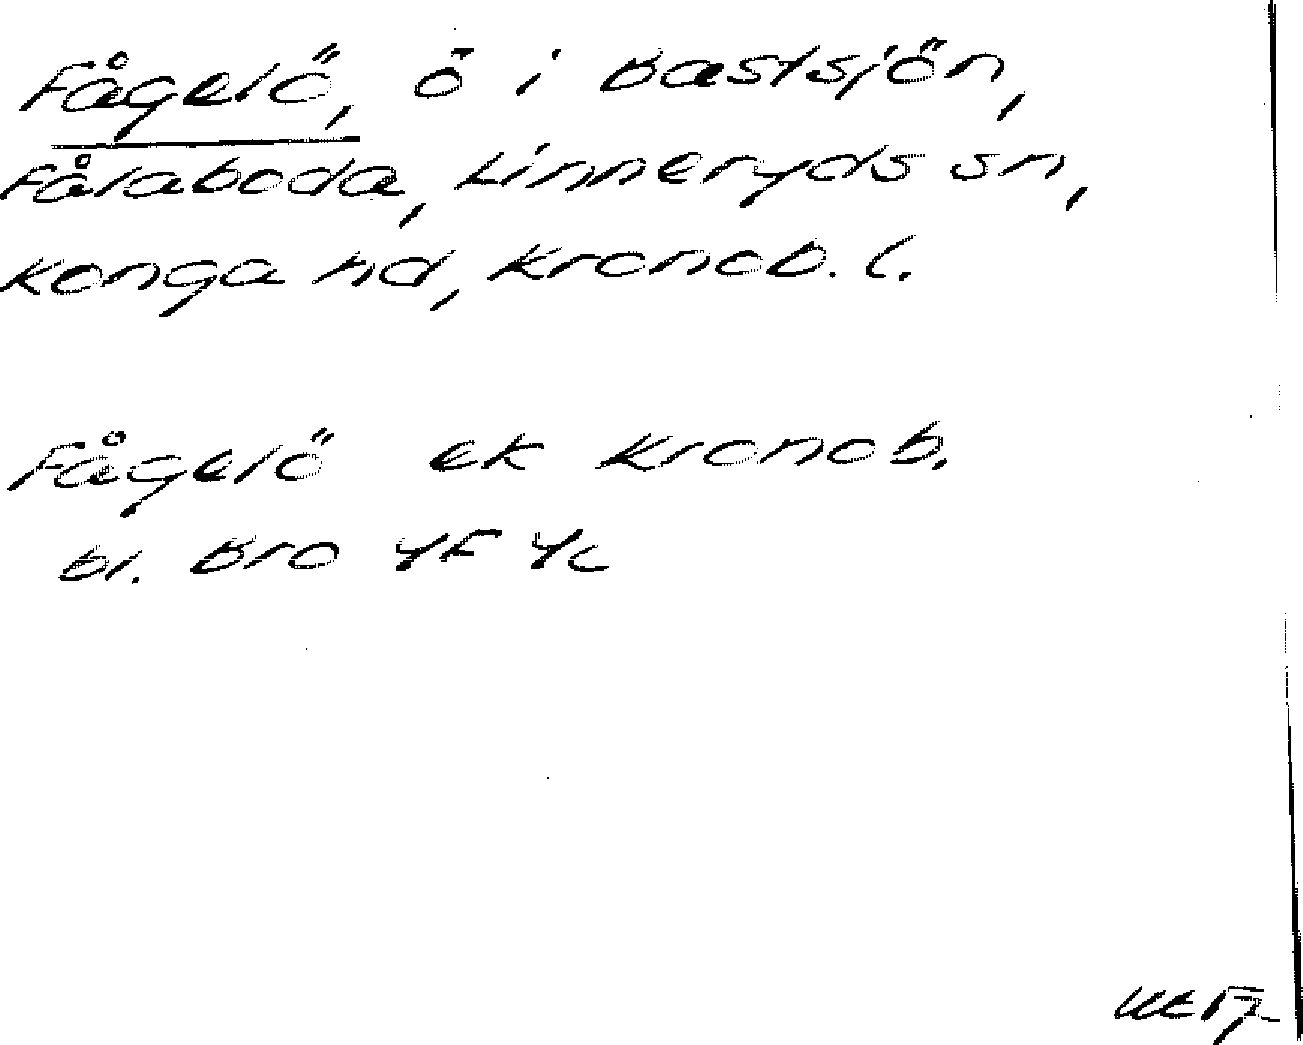 Fågelö, ö i Bastsjön,
Fåraboda, Linneryds sn,
Konga hd, Kronob. l.
Fågelö ek Kronob.
bl. Bro 4F 4c